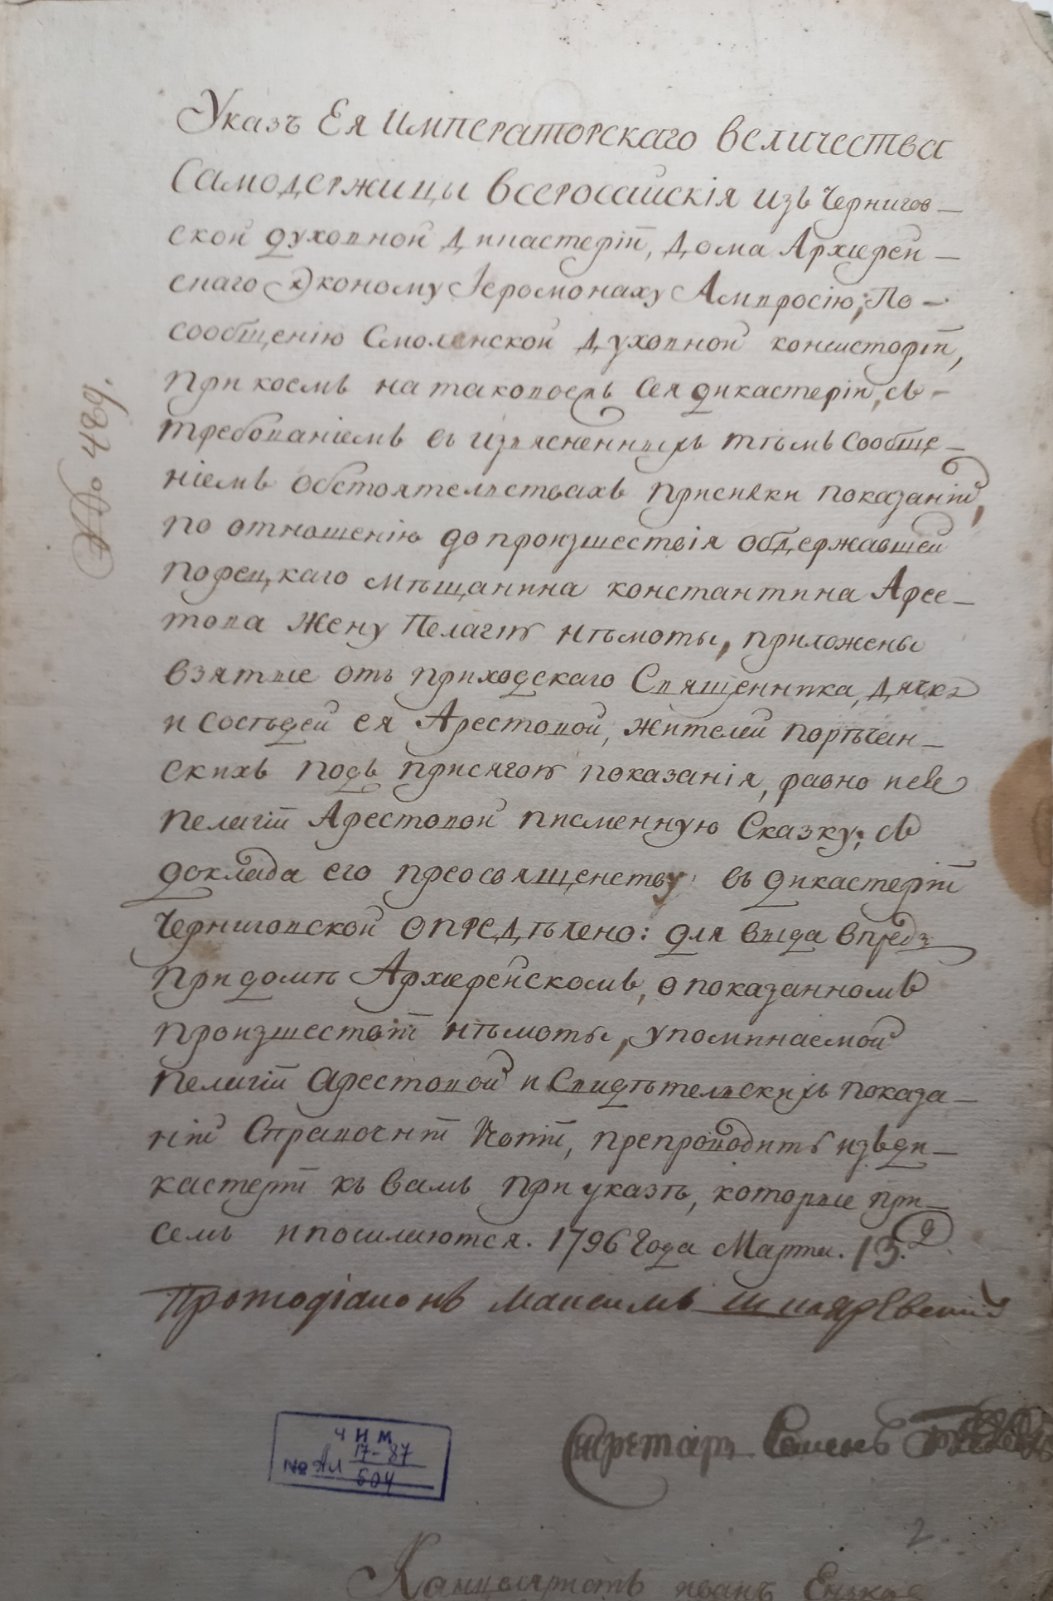 Указъ Ея Императорскаго величества
Самодержицы всеросийскія изъ Чернигов—
ской духовной Дикастеріи, Дома Архіерей—
скаго Економу Іеромонаху Амвросію; По—
сообщенію Смоленской духовной консисторіи,
при коемъ на таковоежъ сея дикастеріи, съ—
требованіемъ въ изъясненныхъ тѣмъ сообще—
ніемъ обстоятельствахъ присилки показаній,
по отношенію до произшествія обдержавшей
порецкаго мѣщанина константина Арес—
това Жену Пелагію нѣмоты, приложены
взятые отъ приходскаго Священника, дячка
и сосѣдей ея Арестовой, жителей порѣчан—
скихъ подъ присягою показанія, равно и ея
пелагіи Арестовой писменную Сказку; съ
доклада его преосвященству въ дикастеріи
Черниговской опредѣлено: для вида впредь
при домѣ Архіерейскомъ, о показанномъ
произшествіи нѣмоты, упоминаемой
пелагіи арестовой и Свидѣтельскихъ показа—
ній Справочніи Копіи, препроводить изъ ди—
кастеріи къ вамъ при указѣ, которые при—
семъ и посилаются. 1796 Года Марта. 13. Д.
Протодіаконъ Максимъ
Секретарь Семенъ
Канцеляристъ иванъ
№ 489.
ЧНМ
№ Ал 17-87
504
2.